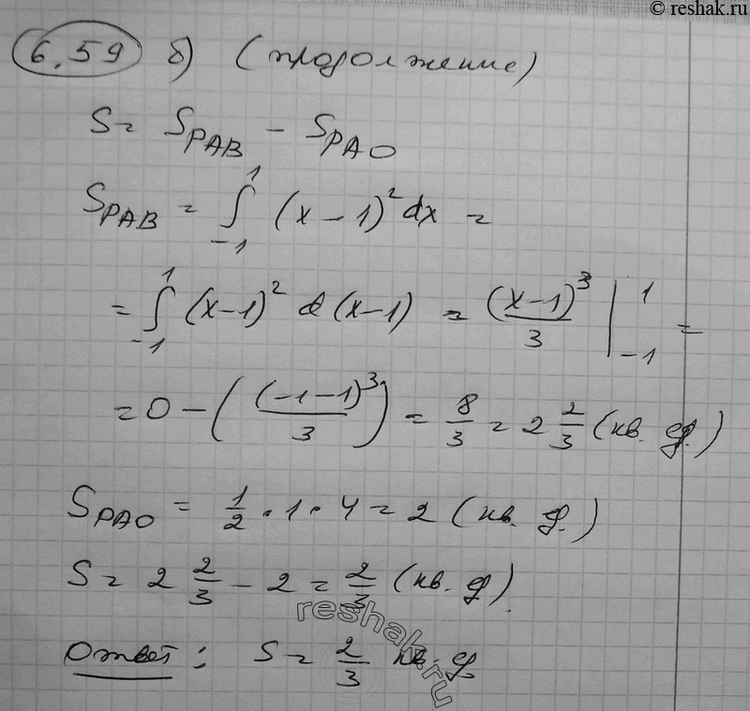 © reshak.ru
6.59 б) (продолжение)
S = S_PAB − S_PAO
S_PAB = ∫_{-1}^{1} (x − 1)² dx =
= ∫_{-1}^{1} (x−1)² d(x−1) = (x−1)³/3 |_{-1}^{1} =
= 0 − ((−1−1)³/3) = 8/3 = 2 2/3 (кв. ед.)
S_PAO = 1/2 · 1 · 4 = 2 (кв. ед.)
S = 2 2/3 − 2 = 2/3 (кв. ед).
Ответ: S = 2/3 кв. ед.
reshak.ru